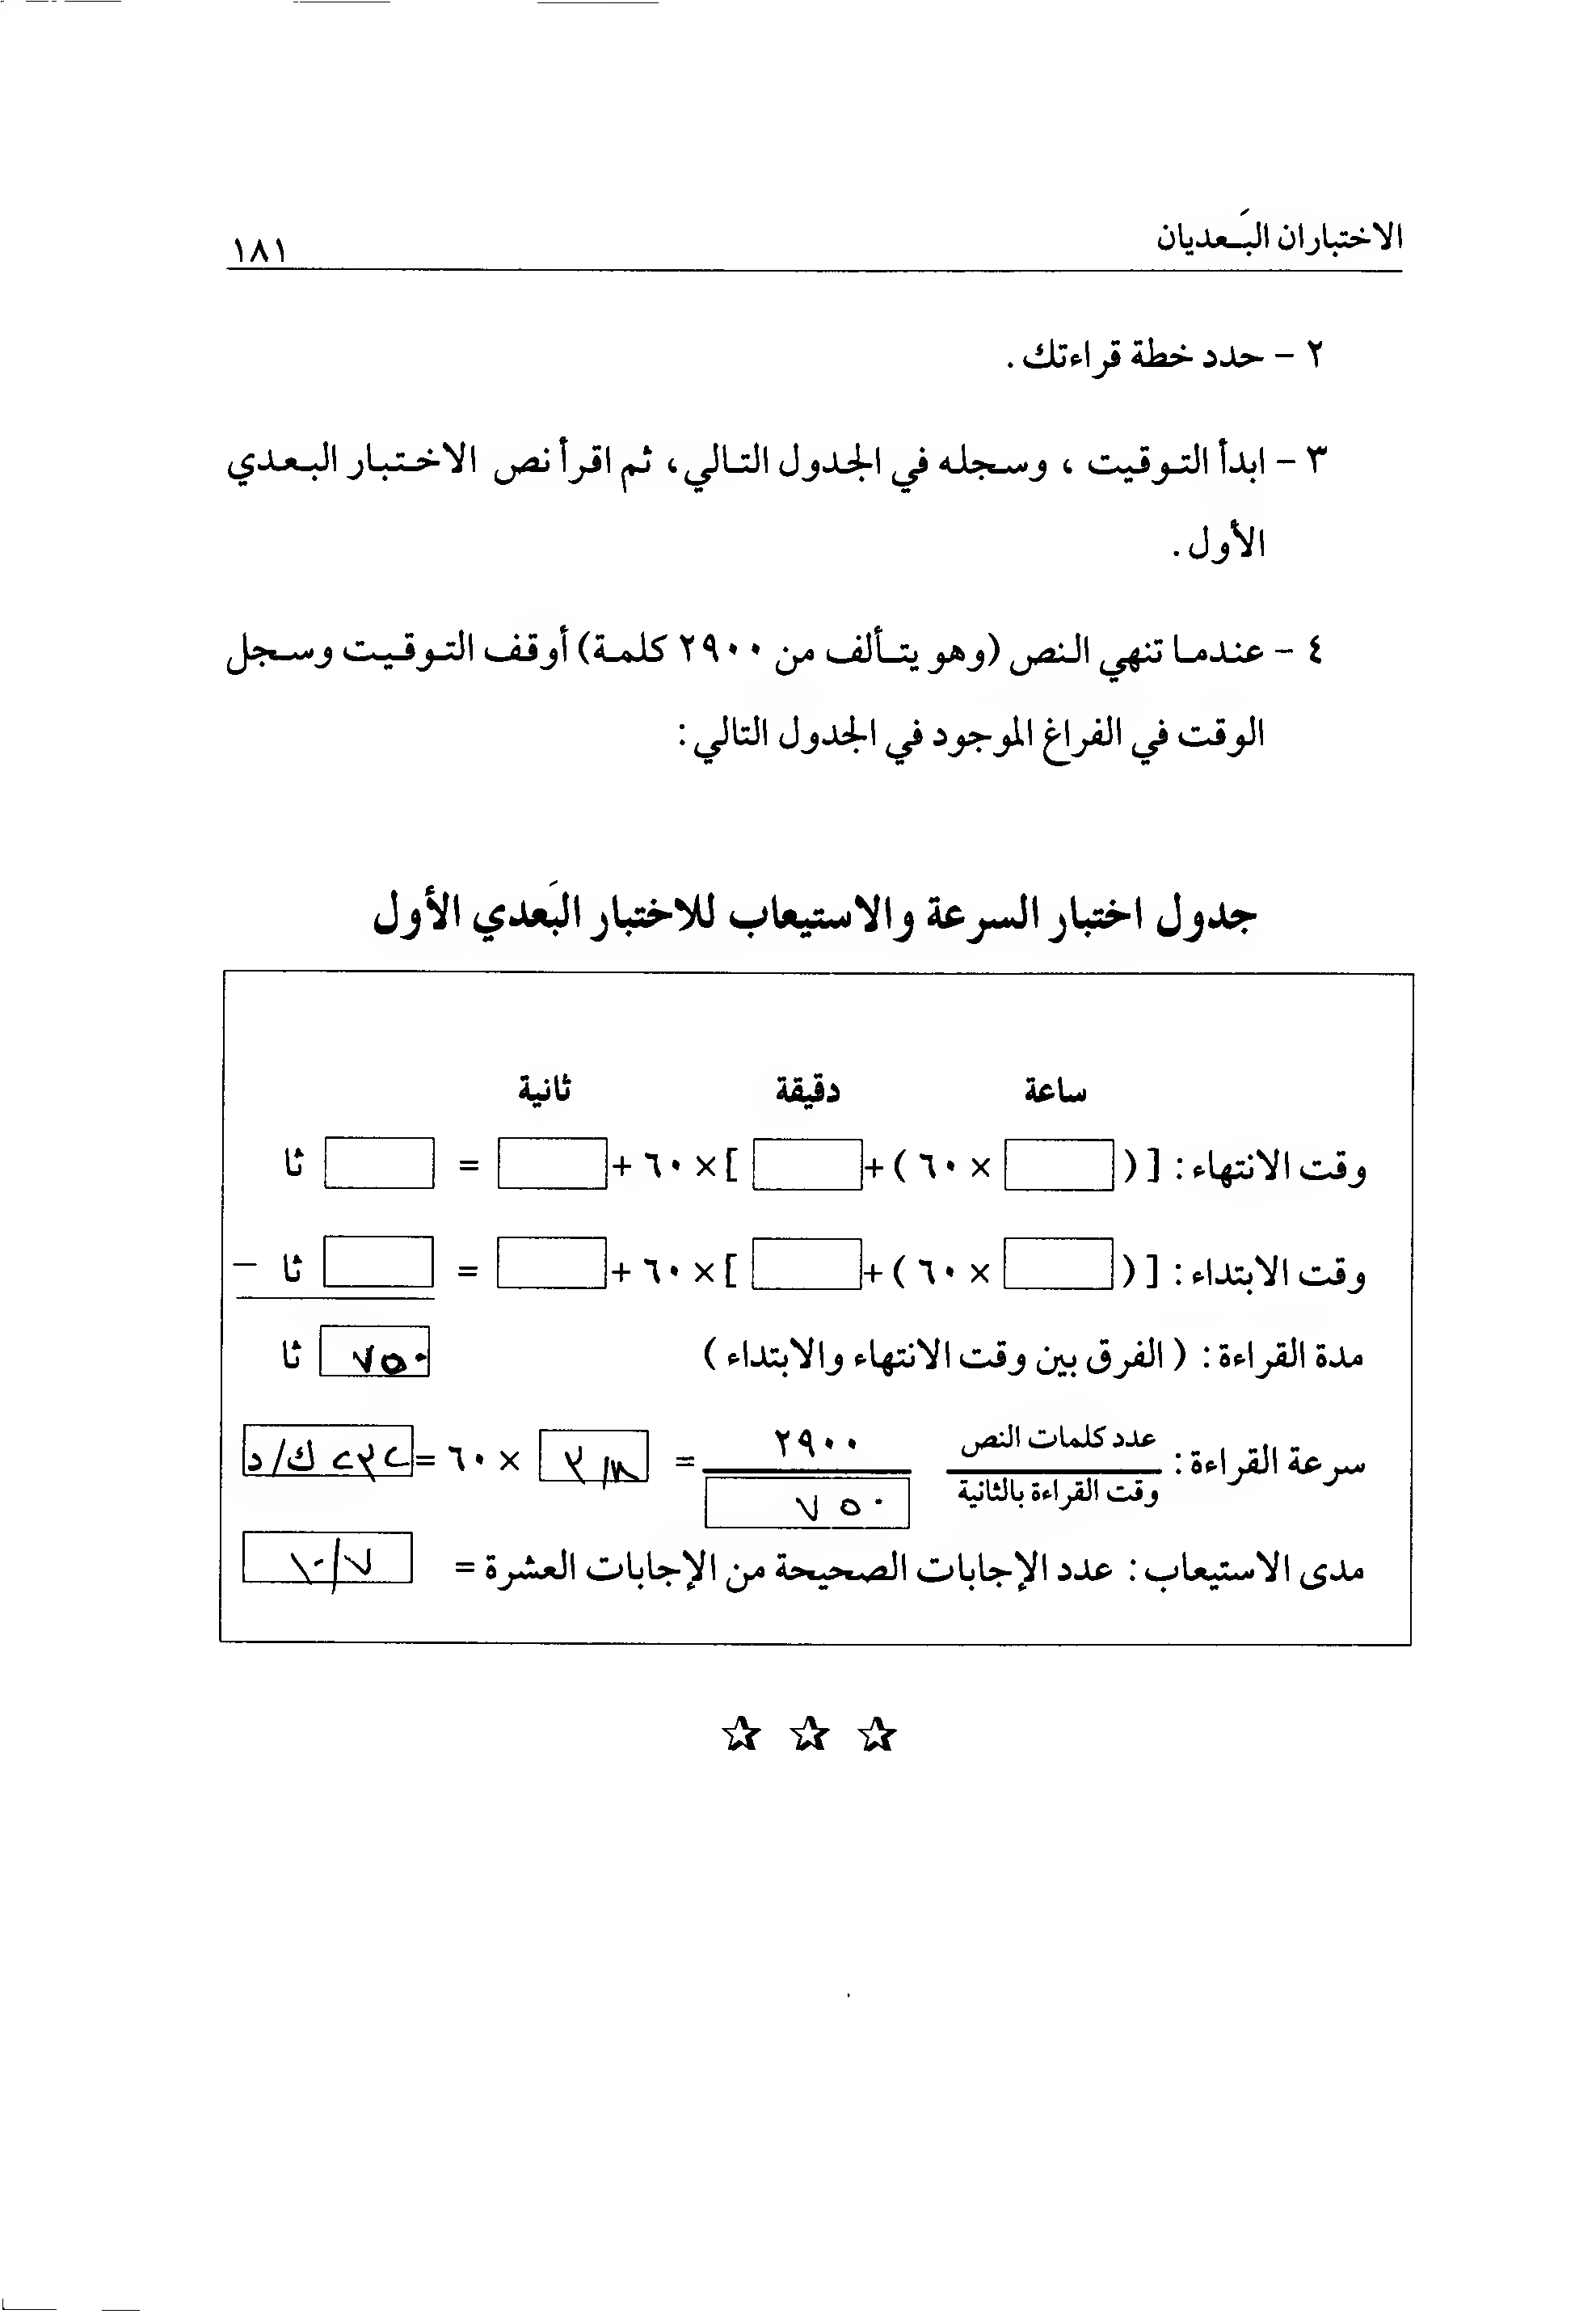 الاختباران البَـعديان
١٨١
٢ - حدد خطة قراءتك .
٣ - ابدأ التوقيت ، وسجله في الجدول التالي، ثم اقرأ نص الاختبار البعدي
الأول .
٤ - عندما تنهي النص (وهو يتألف من ٢٩٠٠ كلمة) أوقف التوقيت وسجل
الوقت في الفراغ الموجود في الجدول التالي:
جدول اختبار السرعة والاستيعاب للاختبار البَعدي الأول
ساعة دقيقة ثانية
وقت الانتهاء: [ ( × ٦٠ ) + ] × ٦٠ + = ثا
وقت الابتداء: [ ( × ٦٠ ) + ] × ٦٠ + = ثا –
مدة القراءة: ( الفرق بين وقت الانتهاء والابتداء ) ٧٥٠ ثا
عدد كلمات النص ٢٩٠٠
سرعة القراءة: = × ٦٠ = ك/د
وقت القراءة بالثانية ٧٥٠
مدى الاستيعاب: عدد الإجابات الصحيحة من الإجابات العشرة = ١٠/٧